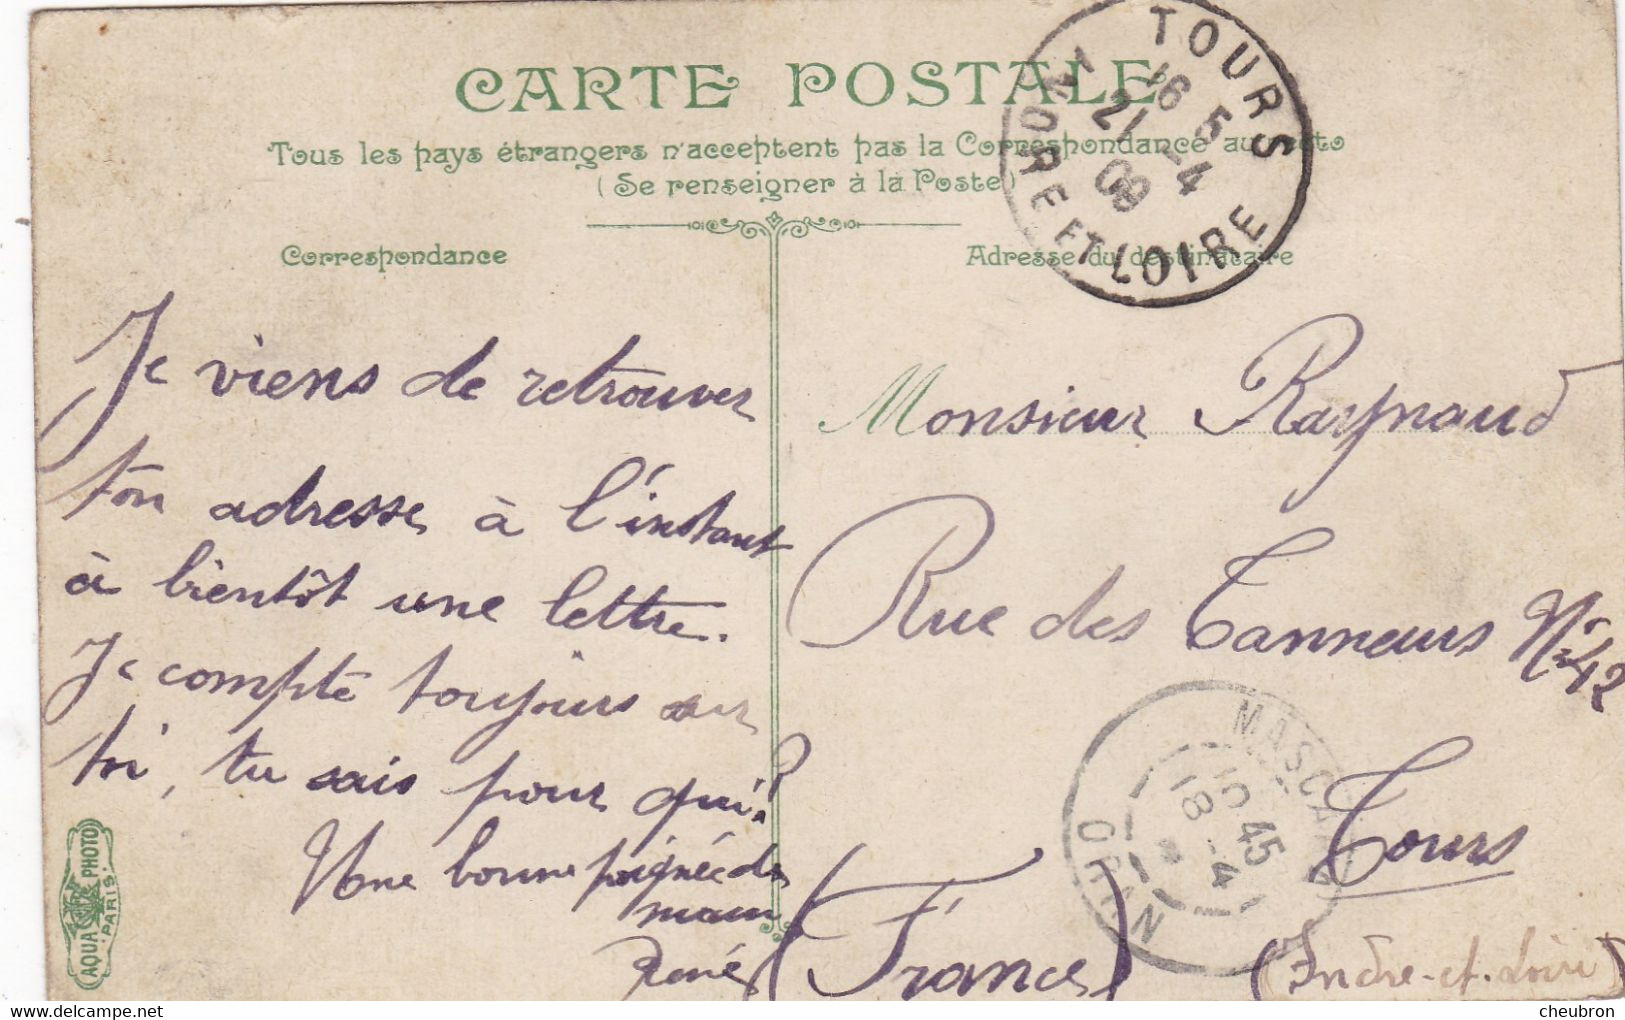 CARTE POSTALE
Tous les pays étrangers n'acceptent pas la Correspondance au recto
(Se renseigner à la Poste)
Correspondance
Adresse du destinataire
TOURS
16 5
21 -4
09
INDRE ET LOIRE
Je viens de retrouver
ton adresse à l'instant
à bientôt une lettre.
Je compte toujours sur
toi, tu sais pour qui?
Une bonne poignée de
main
René
Monsieur Raynaud
Rue des Tanneurs No 42
Tours
(France)
(Indre-et-Loire)
MASCARA
10 45
18 -4
ORAN
AQUA PHOTO
PARIS
cheubron
www.delcampe.net